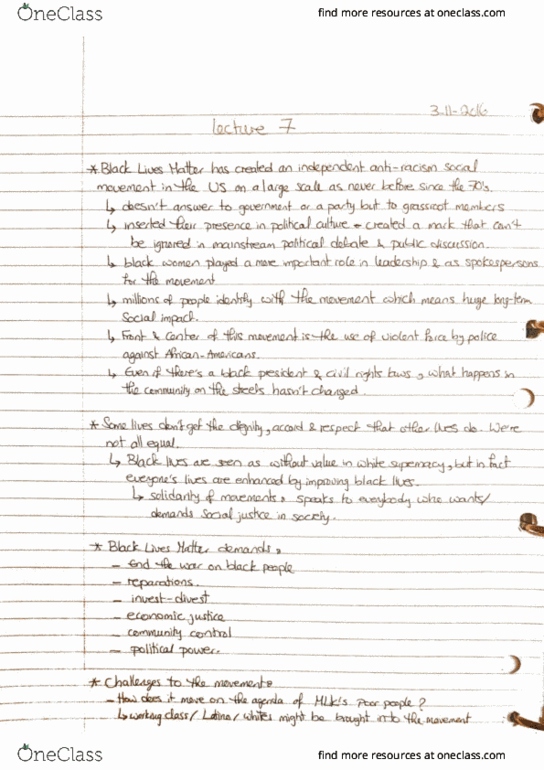 OneClass
find more resources at oneclass.com
3-11-2016
lecture 7
* Black Lives Matter has created an independent anti-racism social
movement in the US on a large scale as never before since the 70's.
↳ doesn't answer to government or a party but to grassroot members
↳ inserted their presence in political culture + created a mark that can't
be ignored in mainstream political debate & public discussion.
↳ black women played a more important role in leadership & as spokespersons
for the movement
↳ millions of people identify with the movement which means huge long-term
social impact.
↳ Front & center of this movement is the use of violent force by police
against African-Americans.
↳ Even if there's a black president & civil rights laws, what happens in
the community on the steets hasn't changed.
* Some lives don't get the dignity, accord & respect that other lives do. We're
not all equal.
↳ Black lives are seen as without value in white supremacy, but in fact
everyone's lives are enhanced by improving black lives.
↳ solidarity of movements, speaks to everybody who wants/
demands social justice in society.
* Black Lives Matter demands,
- End the war on black people
- reparations.
- invest-divest
- economic justice
- community control
- political power.
* Challenges to the movement:
- How does it move on the agenda of MLK's poor people?
↳ working class/ Latino/ whites might be brought into the movement
OneClass
find more resources at oneclass.com